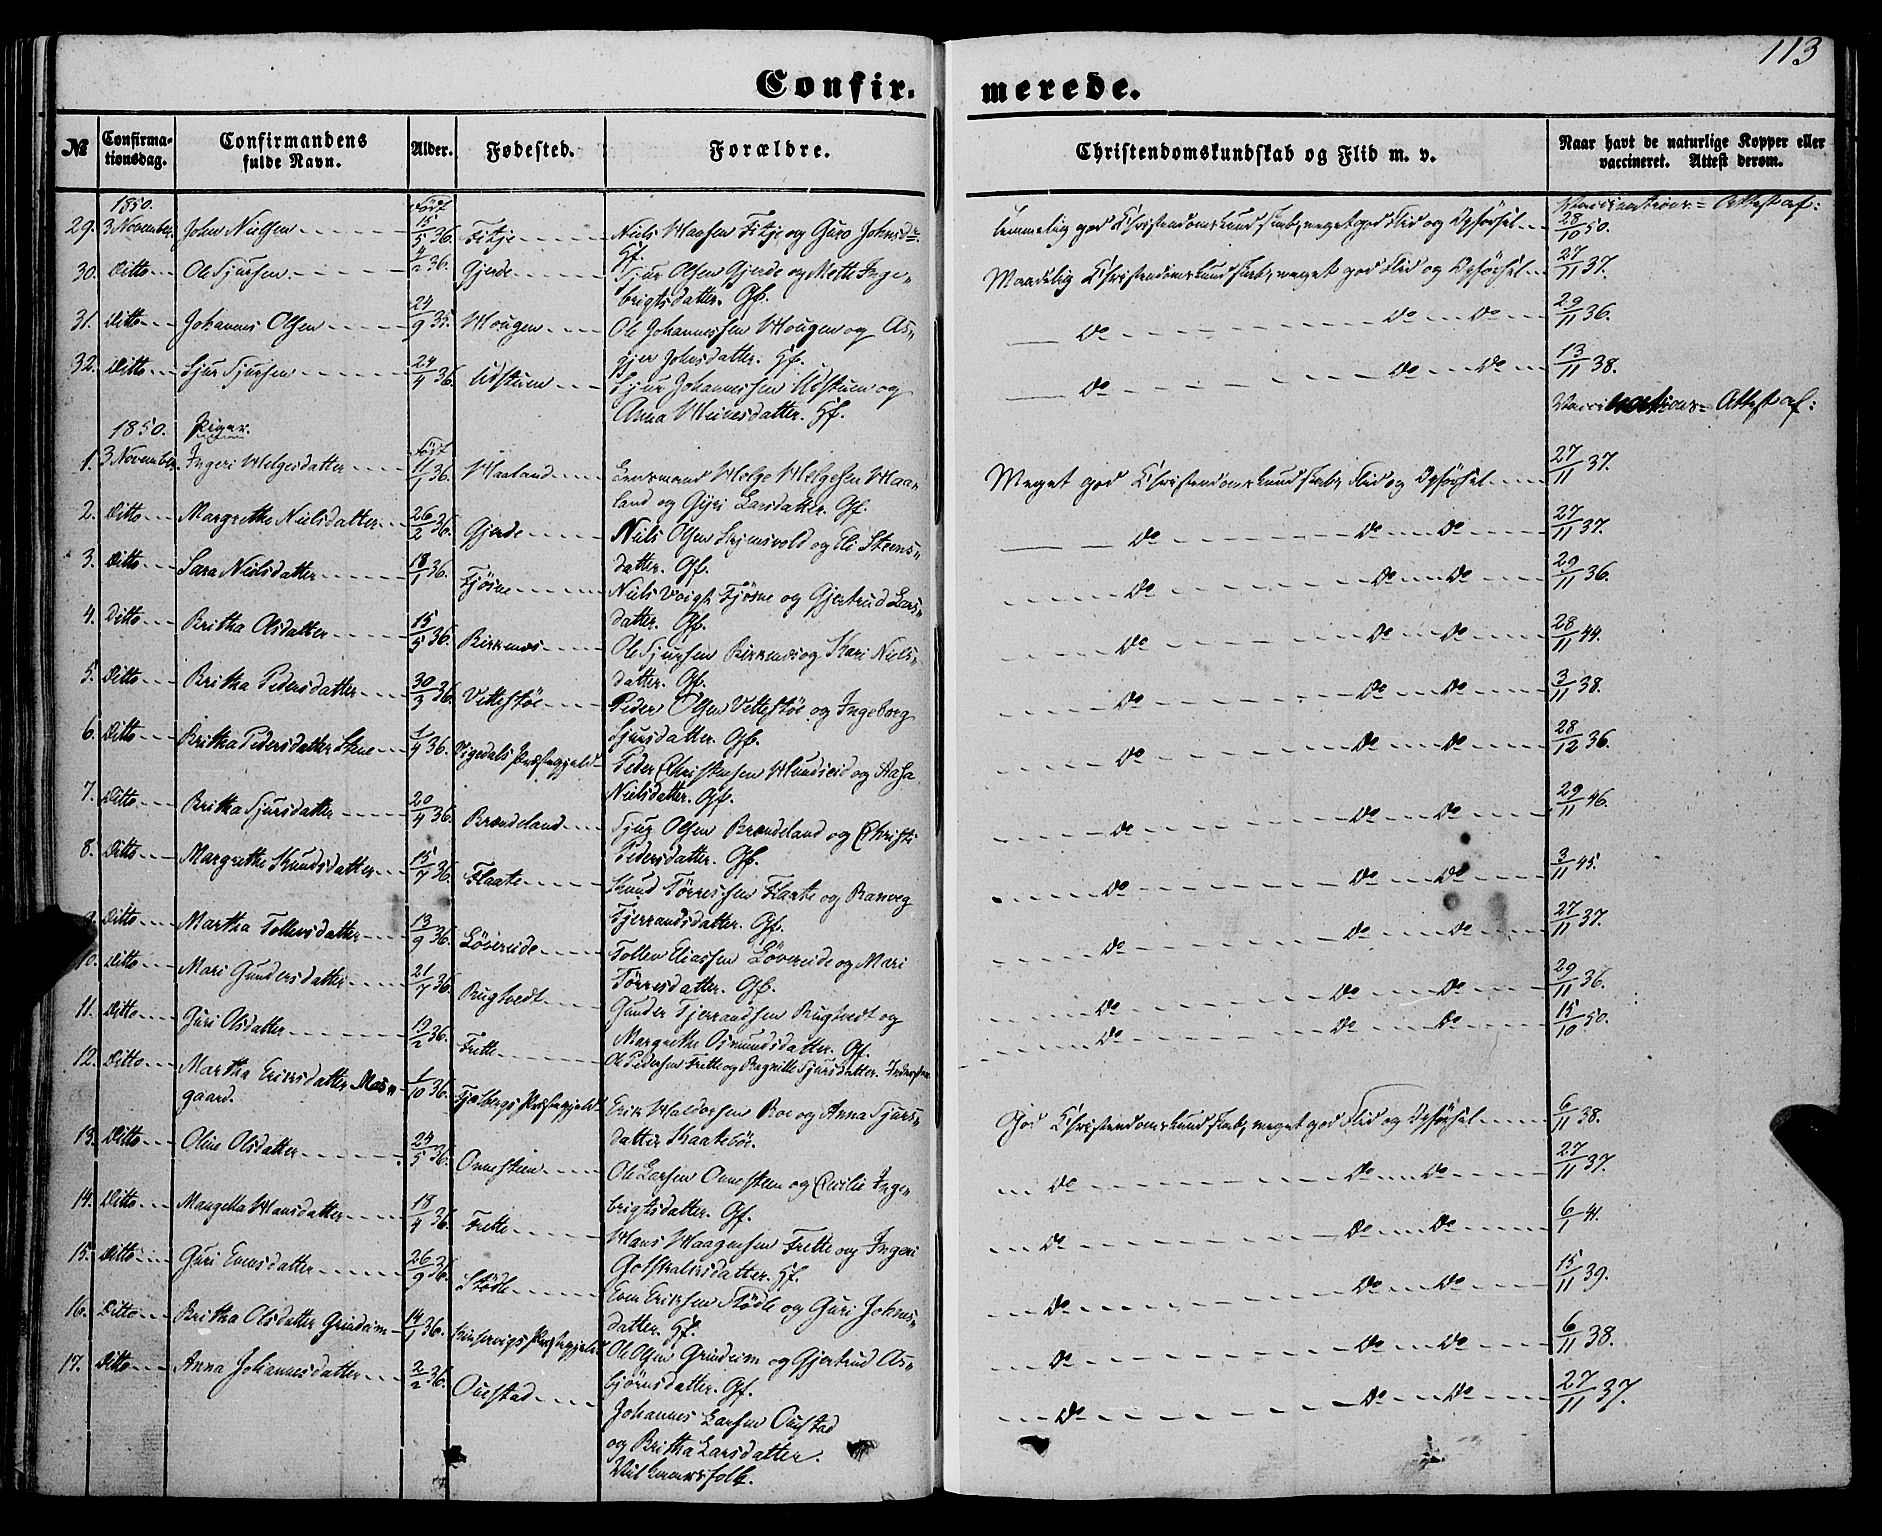 113
Confir. merede.
№ Confirma-tionsdag. Confirmandens fulde Navn. Alder. Fødested. Forældre. Christendomskundskab og Flid m. v. Naar havt de naturlige Kopper eller vaccineret. Attest derom.
1850. Født Vaccinations= Attest af:
29. 3 November John Nielsen 15/5 36. Fitje Niels Haasen Fitje og Guro Johnsdr. Gf. Temmelig god Christendomskundskab, meget god Flid og Opførsel 28/10 50.
30. Ditto Ole Sjursen 4/2 36. Gjerde Sjur Olsen Gjerde og Mette Inge=
brigtsdatter. Gf. Maadelig Christendomskundskab, meget god Flid og Opførsel 27/11 37.
31. Ditto Johannes Olsen 24/9 35. Hougen Ole Johannessen Hougen og As=
gjer Johnsdatter. Gf. Do Do Do 29/11 36.
32. Ditto Sjur Sjursen 24/4 36. Udstuen Sjur Johannessen Udstuen og
Anna Heinesdatter. Gf. Do Do Do 13/11 38.
1850. Piger. Født Vaccinations= Attest af:
1. 3 November Ingeri Helgesdatter 11/1 36. Haaland Lensmand Helge Helgesen Haa=
land og Gyri Larsdatter. Gf. Meget god Christendomskundskab, Flid og Opførsel 27/11 37.
2. Ditto Margrethe Nielsdatter 26/2 36. Gjerde Niels Olsen Skjensvold og Eli Steens=
datter. Gf. Do Do Do 27/11 37.
3. Ditto Sara Nielsdatter 18/1 36. Fjøsne Niels Voigt Fjøsne og Gjertrud Lars=
datter. Gf. Do Do Do 29/11 36.
4. Ditto Britha Olsdatter 15/5 36. Birkenes Ole Sjursen Birkenes og Kari Niels=
datter. Gf. Do Do Do 28/11 44.
5. Ditto Britha Pedersdatter 30/3 36. Vettestøe Peder Olsen Vettestøe og Ingeborg
Sjursdatter. Gf. Do Do Do 3/11 38.
6. Ditto Britha Pedersdatter Skue 1/4 36. Vigedals Præstegjeld Peder Christensen Hundseid og Aasa
Nielsdatter. Gf. Do Do Do 28/12 36.
7. Ditto Britha Sjursdatter 20/4 36. Brændeland Sjur Olsen Brændeland og Christi
Pedersdatter. Gf. Do Do Do 29/11 46.
8. Ditto Margrethe Knudsdatter 15/7 36. Flaate Knud Tørressen Flaate og Ranveg
Tjerrandsdatter. Gf. Do Do Do 3/11 45.
9. Ditto Martha Tollevsdatter 13/9 36. Løvereide Tollev Eliassen Løvereide og Mari
Tørresdatter. Gf. Do Do Do 27/11 37.
10. Ditto Mari Gundersdatter 21/7 36. Rugtvedt Gunder Tjerrandsen Rugtvedt og
Margrethe Osmundsdatter. Gf. Do Do Do 29/11 36.
11. Ditto Guri Olsdatter 19/2 36. Frette Ole Pedersen Frette og Ragnille Sjursdatter. Do Do Do 15/10 50.
12. Ditto Martha Eriksdatter Mos=
gaard. 1/10 36. Fjelbergs Præstegjeld Erik Haldorsen Boe og Anna Sjurs=
datter Kaatebøe. God Christendomskundskab, meget god Flid og Opførsel 6/11 38.
13. Ditto Oline Olsdatter 24/5 36. Onnesteen Ole Larsen Onnesteen og Cecilie Inge=
brigtsdatter. Gf. Do Do Do 27/11 37.
14. Ditto Mangella Hansdatter 18/4 36. Frette Hans Haagensen Frette og Ingeri
Gotskalksdatter. Gf. Do Do Do 6/1 41.
15. Ditto Guri Evensdatter 26/9 36. Stødle Even Eriksen Stødle og Guri Johns=
datter. Gf. Do Do Do 15/11 39.
16. Ditto Britha Olsdatter Grindeim 14/1 36. Kinservigs Præstegjeld Ole Olsen Grindeim og Gjertrud As=
bjørnsdatter. Gf. Do Do Do 6/11 38.
17. Ditto Anna Johannesdatter 2/2 36. Ouestad Johannes Larsen Ouestad
og Britha Larsdatter. Do Do Do 27/11 37.